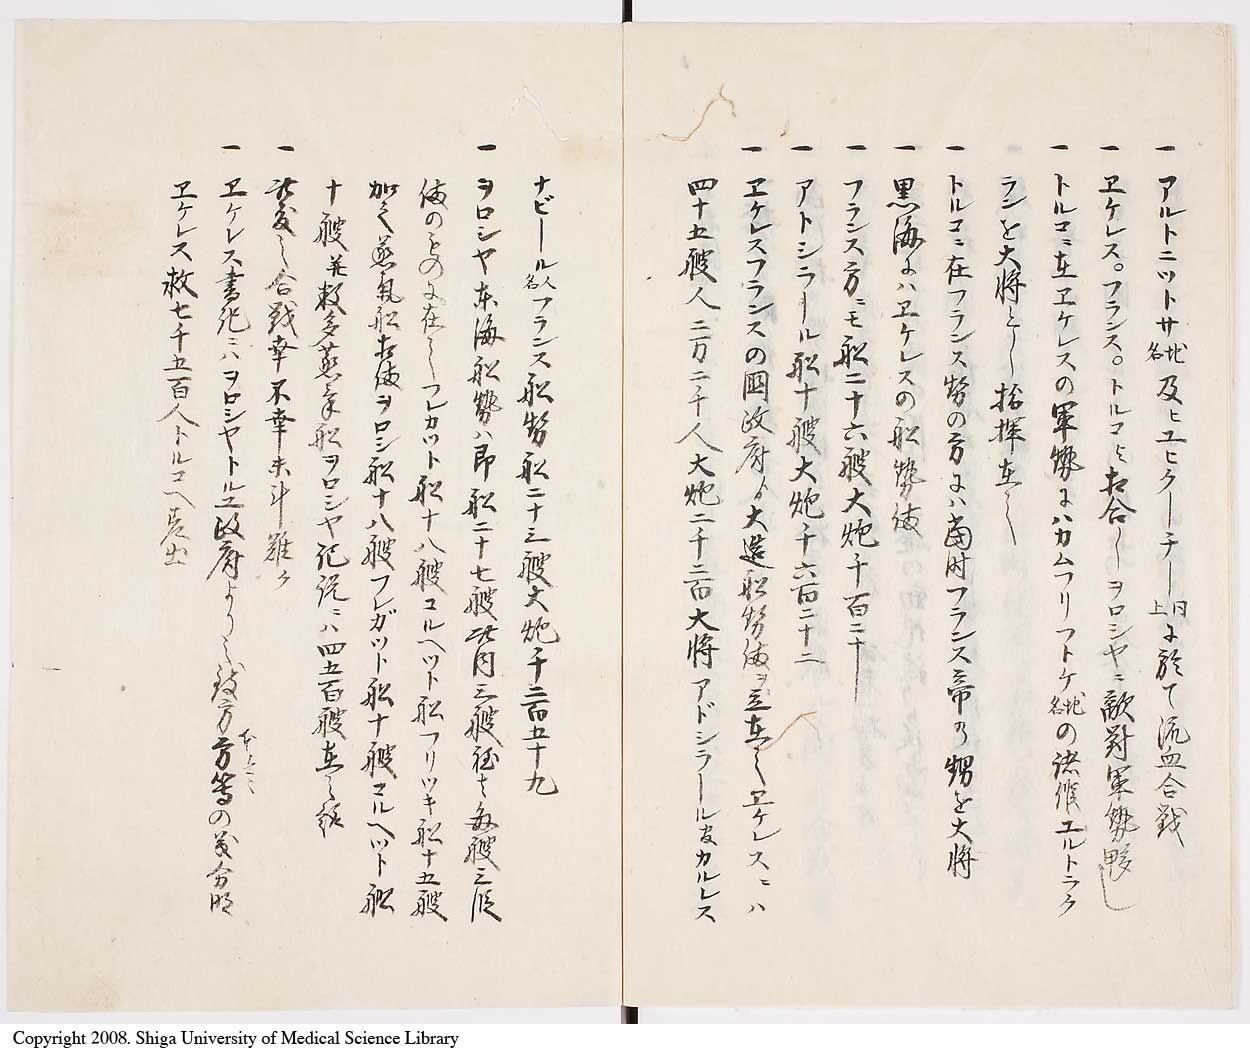 一 アルトニツトサ地名及ヒユヒクーチー同上に於て流血合戦
一 ヱケレス。フランス。トルコと相合しヲロシヤニ敵対軍勢夥し
一 トルコニ在ヱケレスの軍勢にハカムフリフトケ地名の諸侯エルトラク
ランを大将とし指揮在之
一 トルコニ在フランス勢の方にハ當時フランス帝の甥を大将
一 黒海にハヱケレスの船勢備
一 フランス方ニモ船二十六艘大炮千百二十
一 アトシラール船十艘大炮千六百二十二
一 ヱケレスフランスの國政府ゟ大造船勢備ヲ立在之ヱケレスニハ
四十五艘人二万二千人大炮二千二百大将アドシラール官カルレス
ナビール人名フランス船勢船二十三艘大炮千二百五十九
一 ヲロシヤ東海船勢ハ即船二十七艘此内三艘
備のものに在之フレカット船十八艘コルヘット船フリツキ船十五艘
加之蒸気船相備ヲロシ船十八艘フレガット船十艘コルヘット船
十艘并数多蒸気船ヲロシヤ記説ニハ四五百艘在之
一 此度之合戦幸不幸未斗難ク
一 ヱケレス書記ニハヲロシヤトルコ政府より之 方 方等の義分明
ヱケレス救七千五百人トルコヘ差出